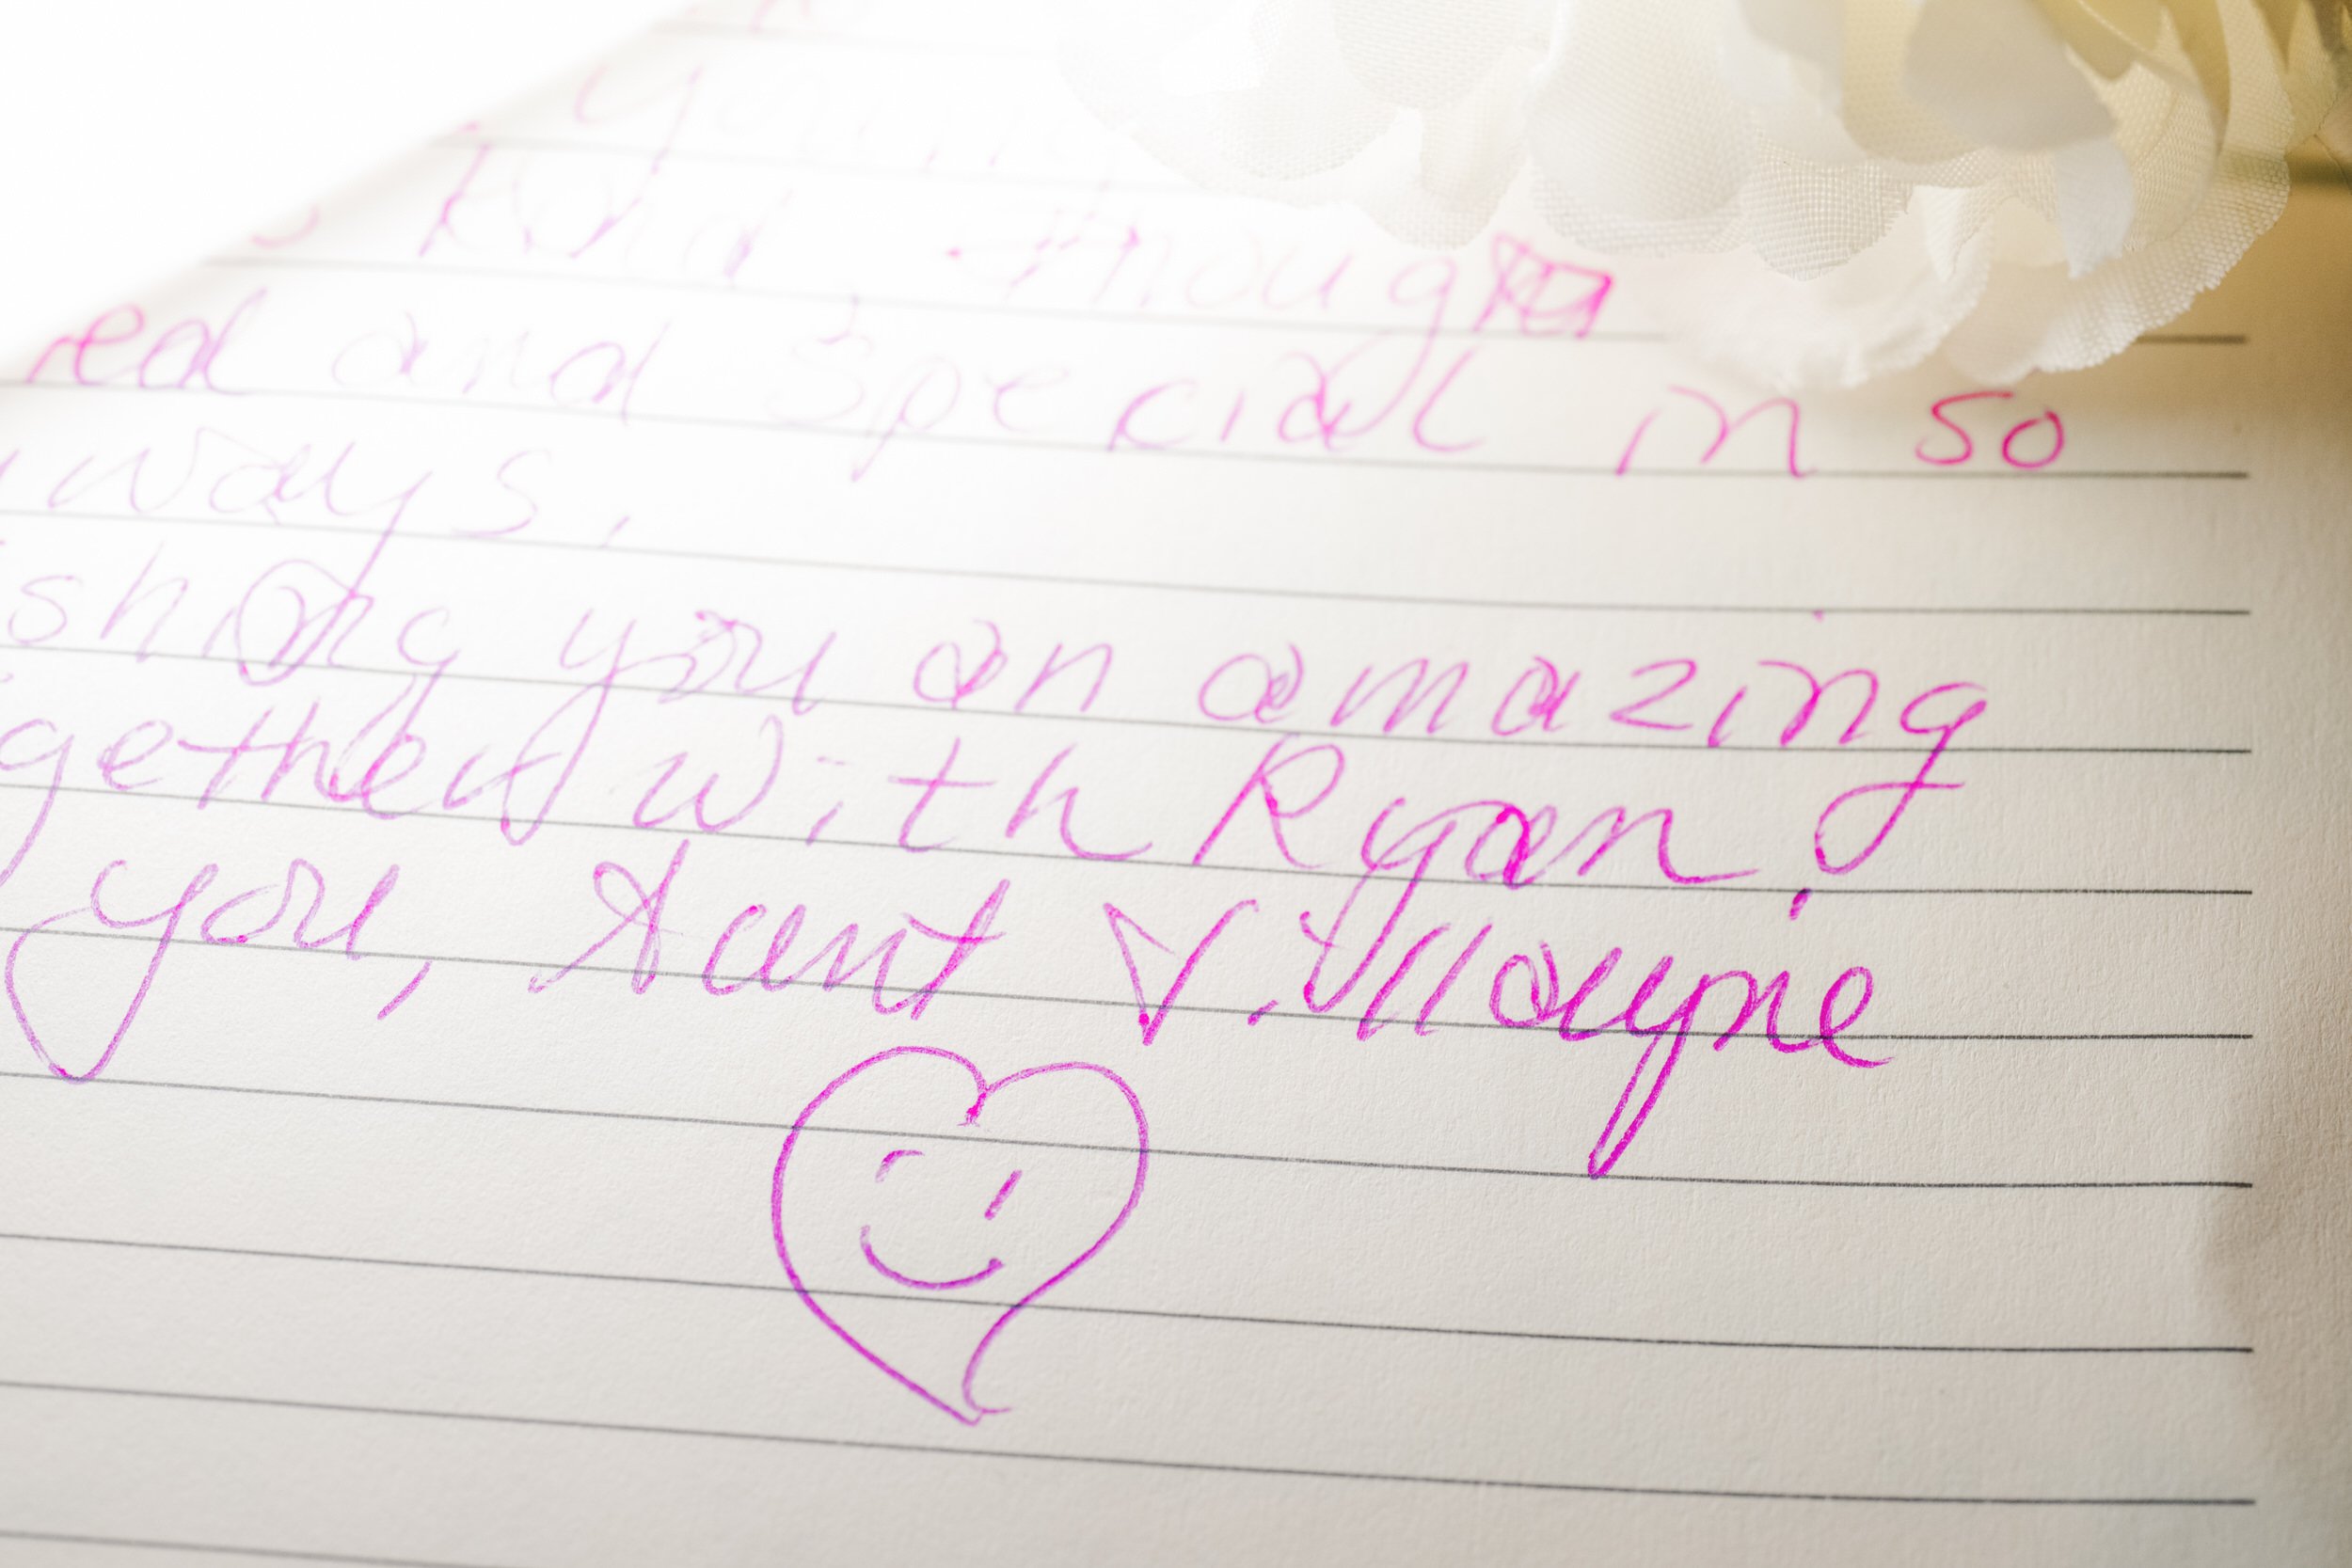 kind, though
red and special in so
ways.
shing you an amazing
gether with Ryan.
you, Aunt V. Wayne